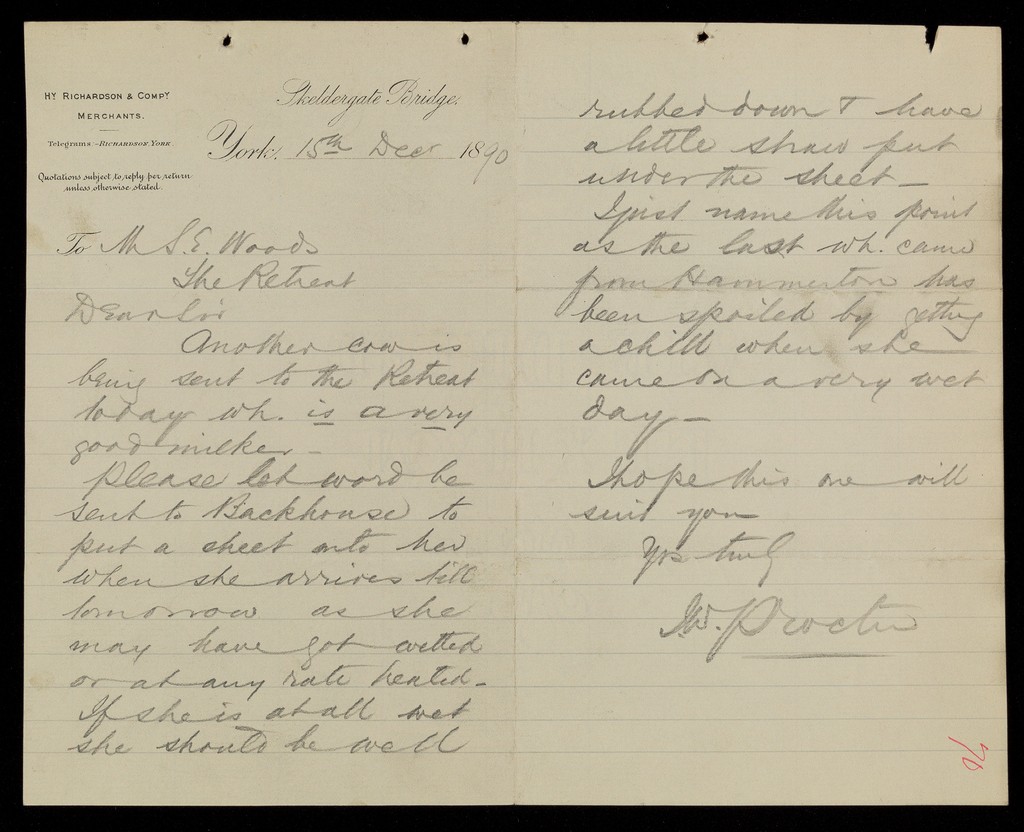 Hy Richardson & Compy
Merchants.
Telegrams:-Richardson York
Quotations subject to reply per return
unless otherwise stated.
Skeldergate Bridge,
York, 15th Decr 1890
To Mr S. E. Woods
The Retreat
Dear Sir
Another cow is
being sent to the Retreat
today wh. is a very
good milker -
Please let word be
sent to Backhouse to
put a sheet onto her
when she arrives till
tomorrow as she
may have got wetted
or at any rate heated -
If she is at all wet
she should be well
rubbed down & have
a little straw put
under the sheet -
I just name this point
as the last wh. came
from Hammerton has
been spoiled by getting
a chill when she
came on a very wet
day -
I hope this one will
suit you
Yrs truly
Procter
76